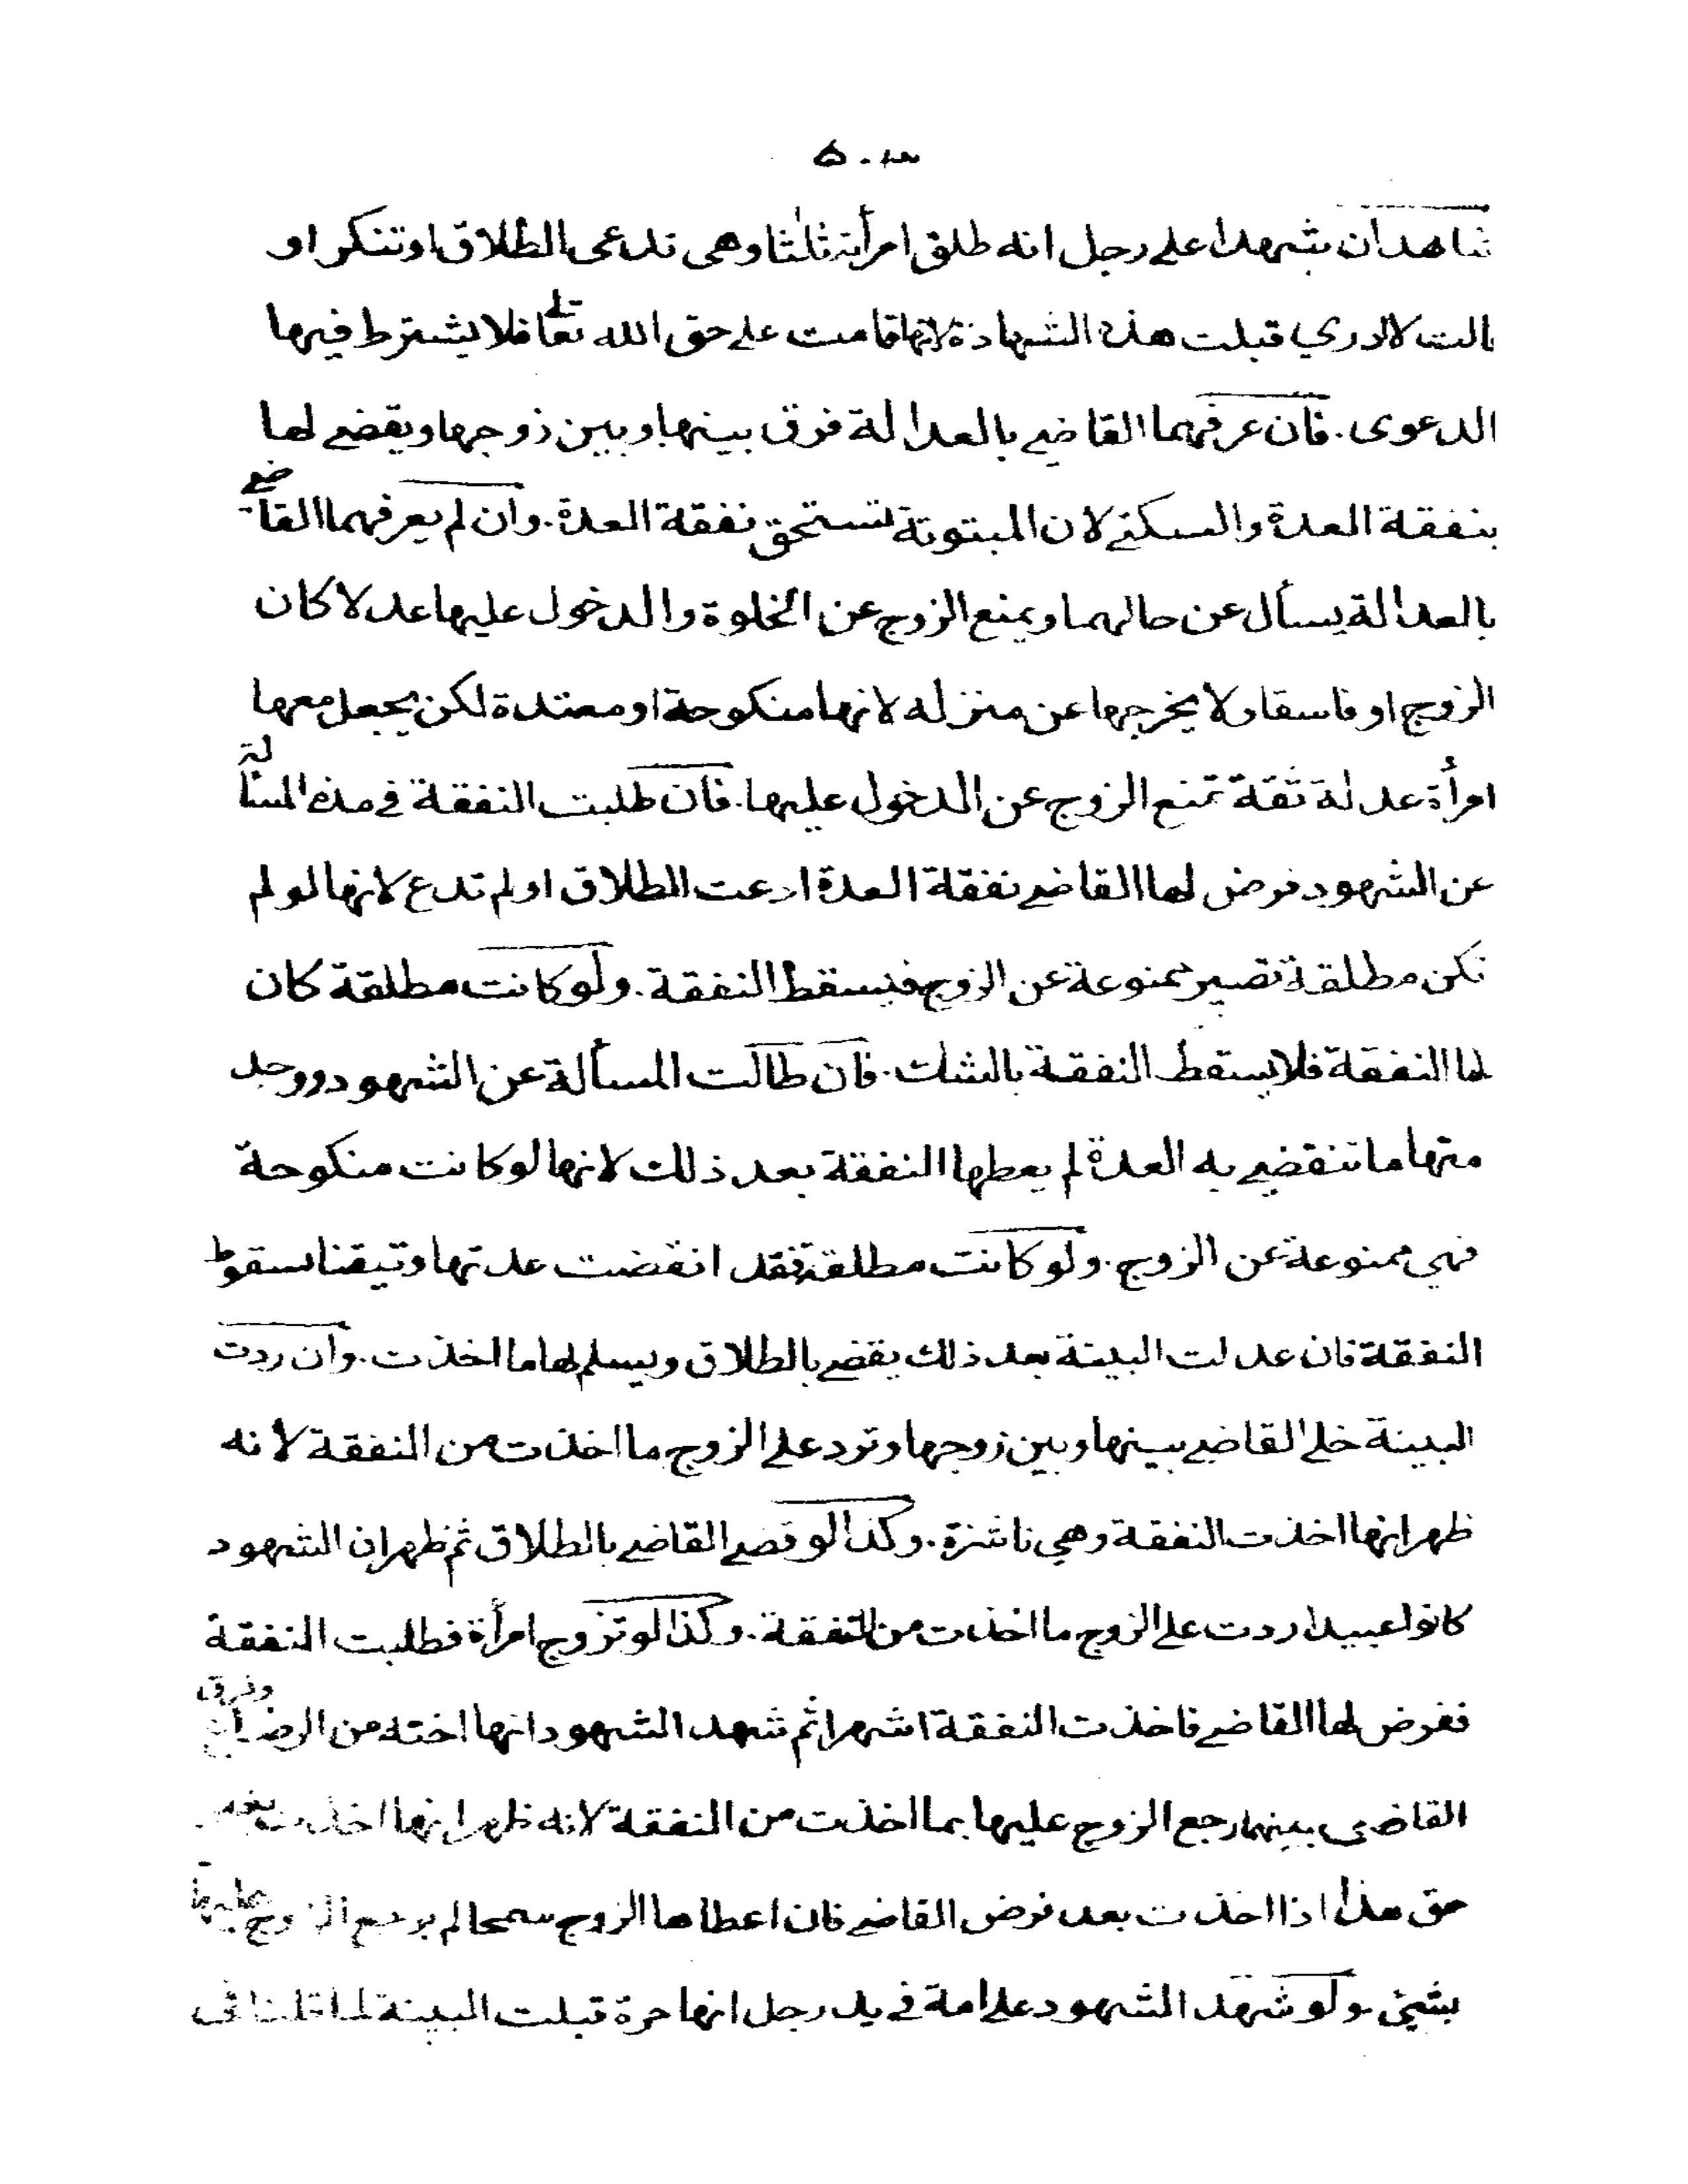 شاهدان شهدا على رجل انه طلق امرأته ثلثا وهى تدعى الطلاق او تنكر او
قالت لا ادري قبلت هذه الشهادة لانها قامت على حق الله تعالى فلا يشترط فيها
الدعوى. فان عرفهما القاضي بالعدالة فرق بينها وبين زوجها ويقضي لها
بنفقة العدة والسكنى لان المبتوتة تستحق نفقة العدة. وان لم يعرفهما القاضي
بالعدالة يسأل عن حالهما ويمنع الزوج عن الخلوة والدخول عليها عدلا كان
الزوج او فاسقا ولا يخرجها عن منزله لانها منكوحة او معتدة لكن يجعل معها
امرأة عدلة ثقة تمنع الزوج عن الدخول عليها. فان طلبت النفقة في مدة المسألة
عن الشهود فرض لها القاضي نفقة العدة ادعت الطلاق او لم تدع لانها لو لم
تكن مطلقة تصير ممنوعة عن الزوج فيسقط النفقة. ولو كانت مطلقة كان
لها النفقة فلا يسقط النفقة بالشك. فان طالت المسألة عن الشهود ووجد
منها ما تنقضي به العدة لم يعطها النفقة بعد ذلك لانها لو كانت منكوحة
فهي ممنوعة عن الزوج. ولو كانت مطلقة فقد انقضت عدتها وتيقنا بسقوط
النفقة فان عدلت البينة بعد ذلك يقضي بالطلاق ويسلم لها ما اخذت. وان ردت
البينة خلى القاضي بينها وبين زوجها وترد على الزوج ما اخذت من النفقة لانه
ظهر انها اخذت النفقة وهي ناشزة. وكذا لو قضى القاضي بالطلاق ثم ظهر ان الشهود
كانوا عبيدا ردت على الزوج ما اخذت من النفقة. وكذا لو تزوج امرأة فطلبت النفقة
ففرض لها القاضي فاخذت النفقة اشهرا ثم شهد الشهود انها اخته من الرضاع وفرق
القاضي بينهما رجع الزوج عليها بما اخذت من النفقة لانه ظهر انها اخذت بغير
حق هذا اذا اخذت بعد فرض القاضي فان اعطاها الزوج سمحا لم يرجع الزوج عليها
بشئ. ولو شهد الشهود على امة في يد رجل انها حرة قبلت البينة لما قلنا في